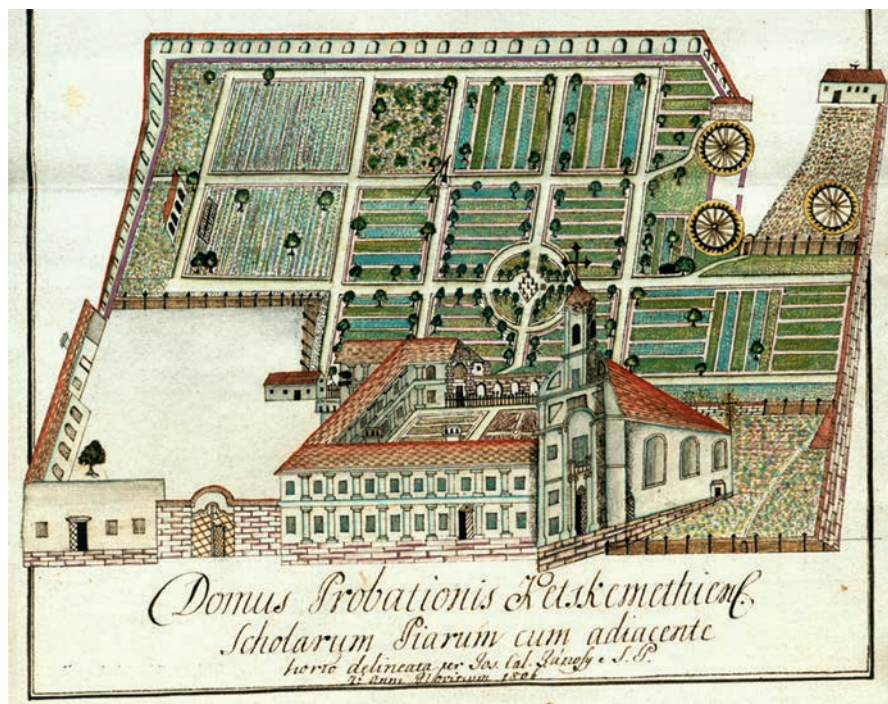 Domus Probationis Ketskemethiens.
Scholarum Piarum cum adjacente
horto delineata per Jos. Cal. e S. P.
Anni 1806